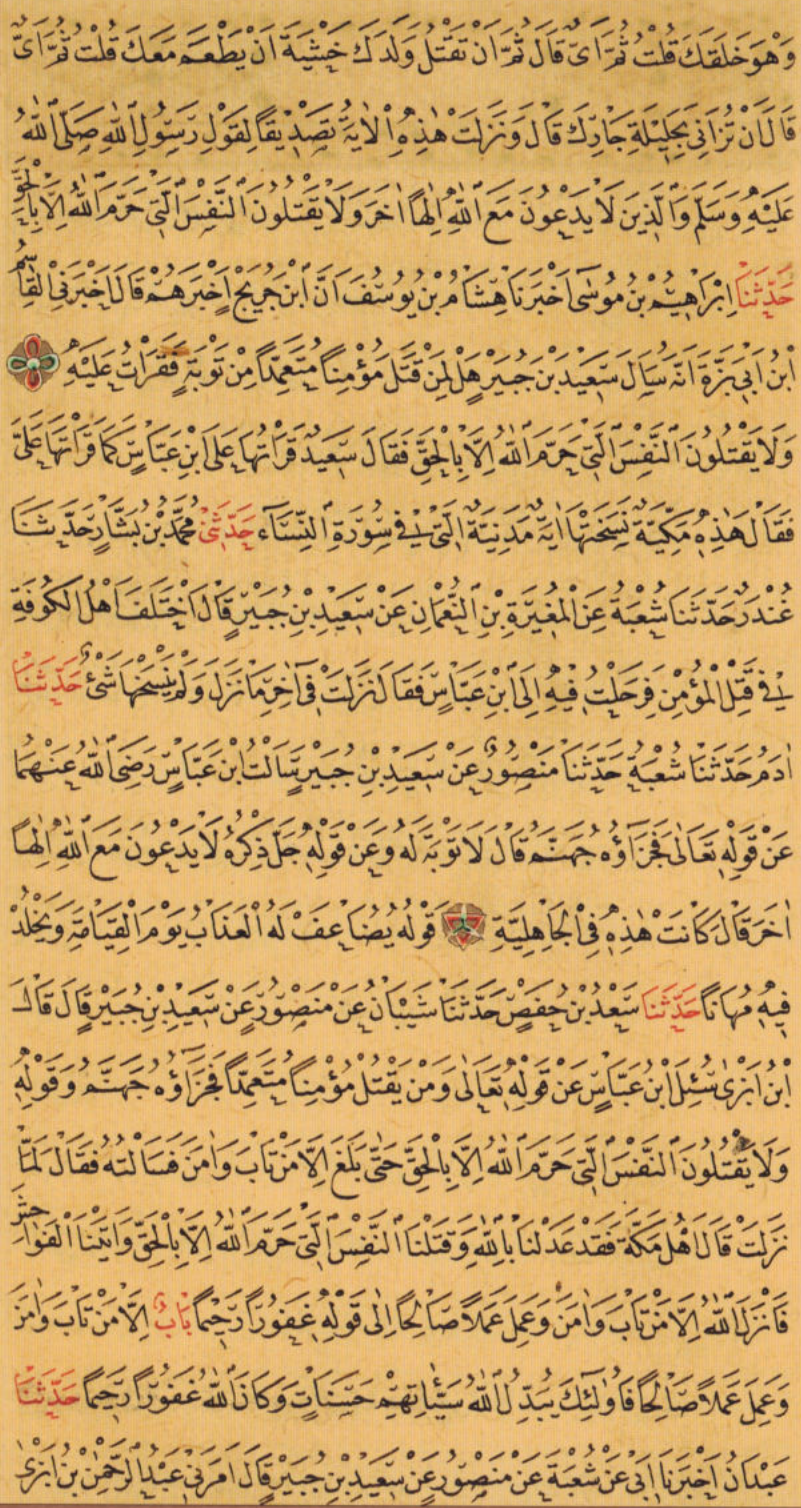 وَهْوَ خَلَقَكَ قُلْتُ ثُمَّ اَىٌّ قَالَ ثُمَّ اَنْ تَقْتُلَ وَلَدَكَ خَشْيَةَ اَنْ يَطْعَمَ مَعَكَ قُلْتُ ثُمَّ اَىٌّ
قَالَ اَنْ تُزَانِىَ بِحَلِيْلَةِ جَارِكَ قَالَ وَنَزَلَتْ هٰذِهِ الْاٰيَةُ تَصْدِيْقًا لِقَوْلِ رَسُوْلِ اللّٰهِ صَلَّى اللّٰهُ
عَلَيْهِ وَسَلَّمَ وَالَّذِينَ لَا يَدْعُونَ مَعَ اللّٰهِ اِلٰهًا اٰخَرَ وَلَا يَقْتُلُونَ النَّفْسَ الَّتِى حَرَّمَ اللّٰهُ اِلَّا بِالْحَقِّ
حَدَّثَنَا اِبْرَاهِيْمُ بْنُ مُوسٰى اَخْبَرَنَا هِشَامُ بْنُ يُوسُفَ اَنَّ ابْنَ جُرَيْجٍ اَخْبَرَهُمْ قَالَ اَخْبَرَنِى الْقَاسِمُ
ابْنُ اَبِى بَزَّةَ اَنَّهُ سَاَلَ سَعِيْدَ بْنَ جُبَيْرٍ هَلْ لِمَنْ قَتَلَ مُؤْمِنًا مُتَعَمِّدًا مِنْ تَوْبَةٍ فَقَرَاْتُ عَلَيْهِ
وَلَا يَقْتُلُونَ النَّفْسَ الَّتِى حَرَّمَ اللّٰهُ اِلَّا بِالْحَقِّ فَقَالَ سَعِيْدٌ قَرَاْتُهَا عَلَى ابْنِ عَبَّاسٍ كَمَا قَرَاْتَهَا عَلَىَّ
فَقَالَ هٰذِهِ مَكِّيَّةٌ نَسَخَتْهَا اٰيَةٌ مَدَنِيَّةٌ الَّتِى فِى سُوْرَةِ النِّسَآءِ حَدَّثَنِى مُحَمَّدُ بْنُ بَشَّارٍ حَدَّثَنَا
غُنْدَرٌ حَدَّثَنَا شُعْبَةُ عَنِ الْمُغِيْرَةِ بْنِ النُّعْمَانِ عَنْ سَعِيْدِ بْنِ جُبَيْرٍ قَالَ اخْتَلَفَ اَهْلُ الْكُوفَةِ
فِى قَتْلِ الْمُؤْمِنِ فَرَحَلْتُ فِيْهِ اِلَى ابْنِ عَبَّاسٍ فَقَالَ نَزَلَتْ فِى اٰخِرِ مَا نَزَلَ وَلَمْ يَنْسَخْهَا شَىْءٌ حَدَّثَنَا
اٰدَمُ حَدَّثَنَا شُعْبَةُ حَدَّثَنَا مَنْصُوْرٌ عَنْ سَعِيْدِ بْنِ جُبَيْرٍ سَاَلْتُ ابْنَ عَبَّاسٍ رَضِىَ اللّٰهُ عَنْهُمَا
عَنْ قَوْلِهِ تَعَالٰى فَجَزَآؤُهُ جَهَنَّمُ قَالَ لَا تَوْبَةَ لَهُ وَعَنْ قَوْلِهِ جَلَّ ذِكْرُهُ لَا يَدْعُونَ مَعَ اللّٰهِ اِلٰهًا
اٰخَرَ قَالَ كَانَتْ هٰذِهِ فِى الْجَاهِلِيَّةِ قَوْلُهُ يُضَاعَفْ لَهُ الْعَذَابُ يَوْمَ الْقِيَامَةِ وَيَخْلُدْ
فِيْهِ مُهَانًا حَدَّثَنَا سَعْدُ بْنُ حَفْصٍ حَدَّثَنَا شَيْبَانُ عَنْ مَنْصُوْرٍ عَنْ سَعِيْدِ بْنِ جُبَيْرٍ قَالَ قَالَ
ابْنُ اَبْزٰى سُئِلَ ابْنُ عَبَّاسٍ عَنْ قَوْلِهِ تَعَالٰى وَمَنْ يَقْتُلْ مُؤْمِنًا مُتَعَمِّدًا فَجَزَآؤُهُ جَهَنَّمُ وَقَوْلِهِ
وَلَا يَقْتُلُونَ النَّفْسَ الَّتِى حَرَّمَ اللّٰهُ اِلَّا بِالْحَقِّ حَتّٰى بَلَغَ اِلَّا مَنْ تَابَ وَاٰمَنَ فَسَاَلْتُهُ فَقَالَ لَمَّا
نَزَلَتْ قَالَ اَهْلُ مَكَّةَ فَقَدْ عَدَلْنَا بِاللّٰهِ وَقَتَلْنَا النَّفْسَ الَّتِى حَرَّمَ اللّٰهُ اِلَّا بِالْحَقِّ وَاَتَيْنَا الْفَوَاحِشَ
فَاَنْزَلَ اللّٰهُ اِلَّا مَنْ تَابَ وَاٰمَنَ وَعَمِلَ عَمَلًا صَالِحًا اِلٰى قَوْلِهِ غَفُوْرًا رَحِيْمًا بَابُ اِلَّا مَنْ تَابَ وَاٰمَنَ
وَعَمِلَ عَمَلًا صَالِحًا فَاُولٰئِكَ يُبَدِّلُ اللّٰهُ سَيِّئَاتِهِمْ حَسَنَاتٍ وَكَانَ اللّٰهُ غَفُوْرًا رَحِيْمًا حَدَّثَنَا
عَبْدَانُ اَخْبَرَنَا اَبِى عَنْ شُعْبَةَ عَنْ مَنْصُوْرٍ عَنْ سَعِيْدِ بْنِ جُبَيْرٍ قَالَ اَمَرَنِى عَبْدُ الرَّحْمٰنِ بْنُ اَبْزٰى